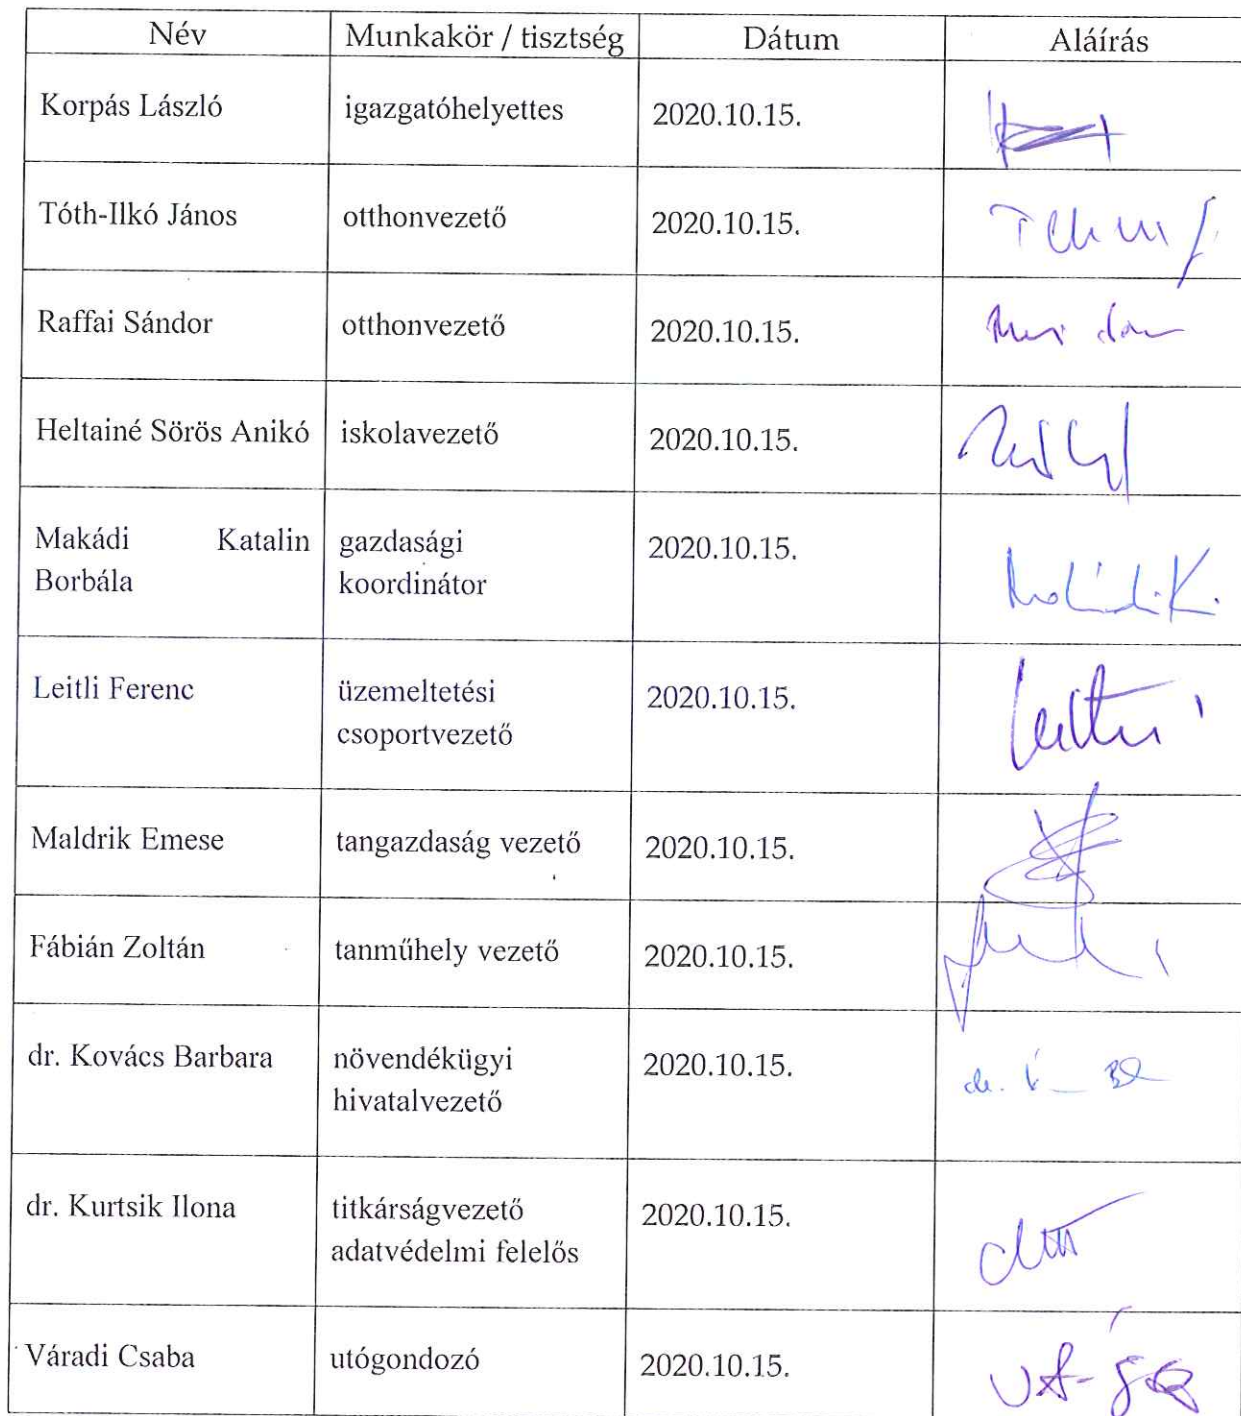 Név Munkakör / tisztség Dátum Aláírás
Korpás László igazgatóhelyettes 2020.10.15.
Tóth-Ilkó János otthonvezető 2020.10.15.
Raffai Sándor otthonvezető 2020.10.15.
Heltainé Sörös Anikó iskolavezető 2020.10.15.
Makádi Katalin gazdasági 2020.10.15.
Borbála koordinátor
Makádi K.
Leitli Ferenc üzemeltetési 2020.10.15.
csoportvezető
Maldrik Emese tangazdaság vezető 2020.10.15.
Fábián Zoltán tanműhely vezető 2020.10.15.
dr. Kovács Barbara növendékügyi 2020.10.15. dr.
hivatalvezető
dr. Kurtsik Ilona titkárságvezető 2020.10.15.
adatvédelmi felelős
Váradi Csaba utógondozó 2020.10.15.